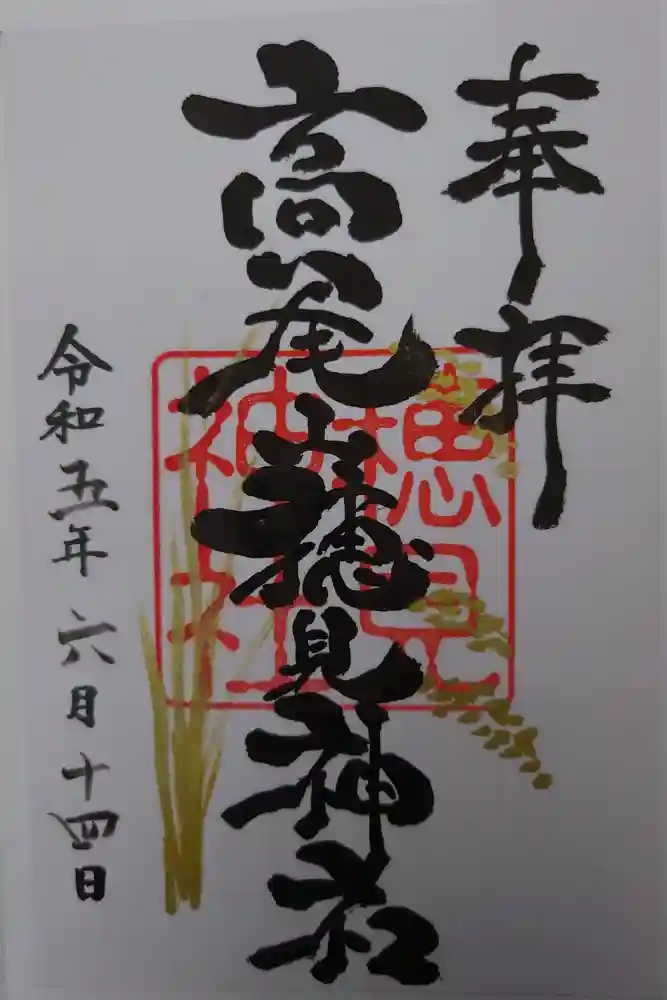 奉拝
高尾山穂見神社
穂見
神社
令和五年六月十四日